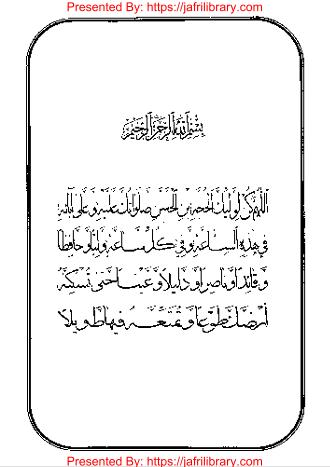 Presented By: https://jafrilibrary.com
بِسْمِ اللهِ الرَّحْمنِ الرَّحِيْمِ
اَللّٰهُمَّ كُنْ لِوَلِيِّكَ الْحُجَّةِ بْنِ الْحَسَنِ صَلَوَاتُكَ عَلَيْهِ وَعَلٰى اٰبَائِهِ
فِي هٰذِهِ السَّاعَةِ وَفِي كُلِّ سَاعَةٍ وَلِيًّا وَحَافِظًا
وَقَائِدًا وَنَاصِرًا وَدَلِيلًا وَعَيْنًا حَتّٰى تُسْكِنَهُ
اَرْضَكَ طَوْعًا وَتُمَتِّعَهُ فِيهَا طَوِيلًا
Presented By: https://jafrilibrary.com